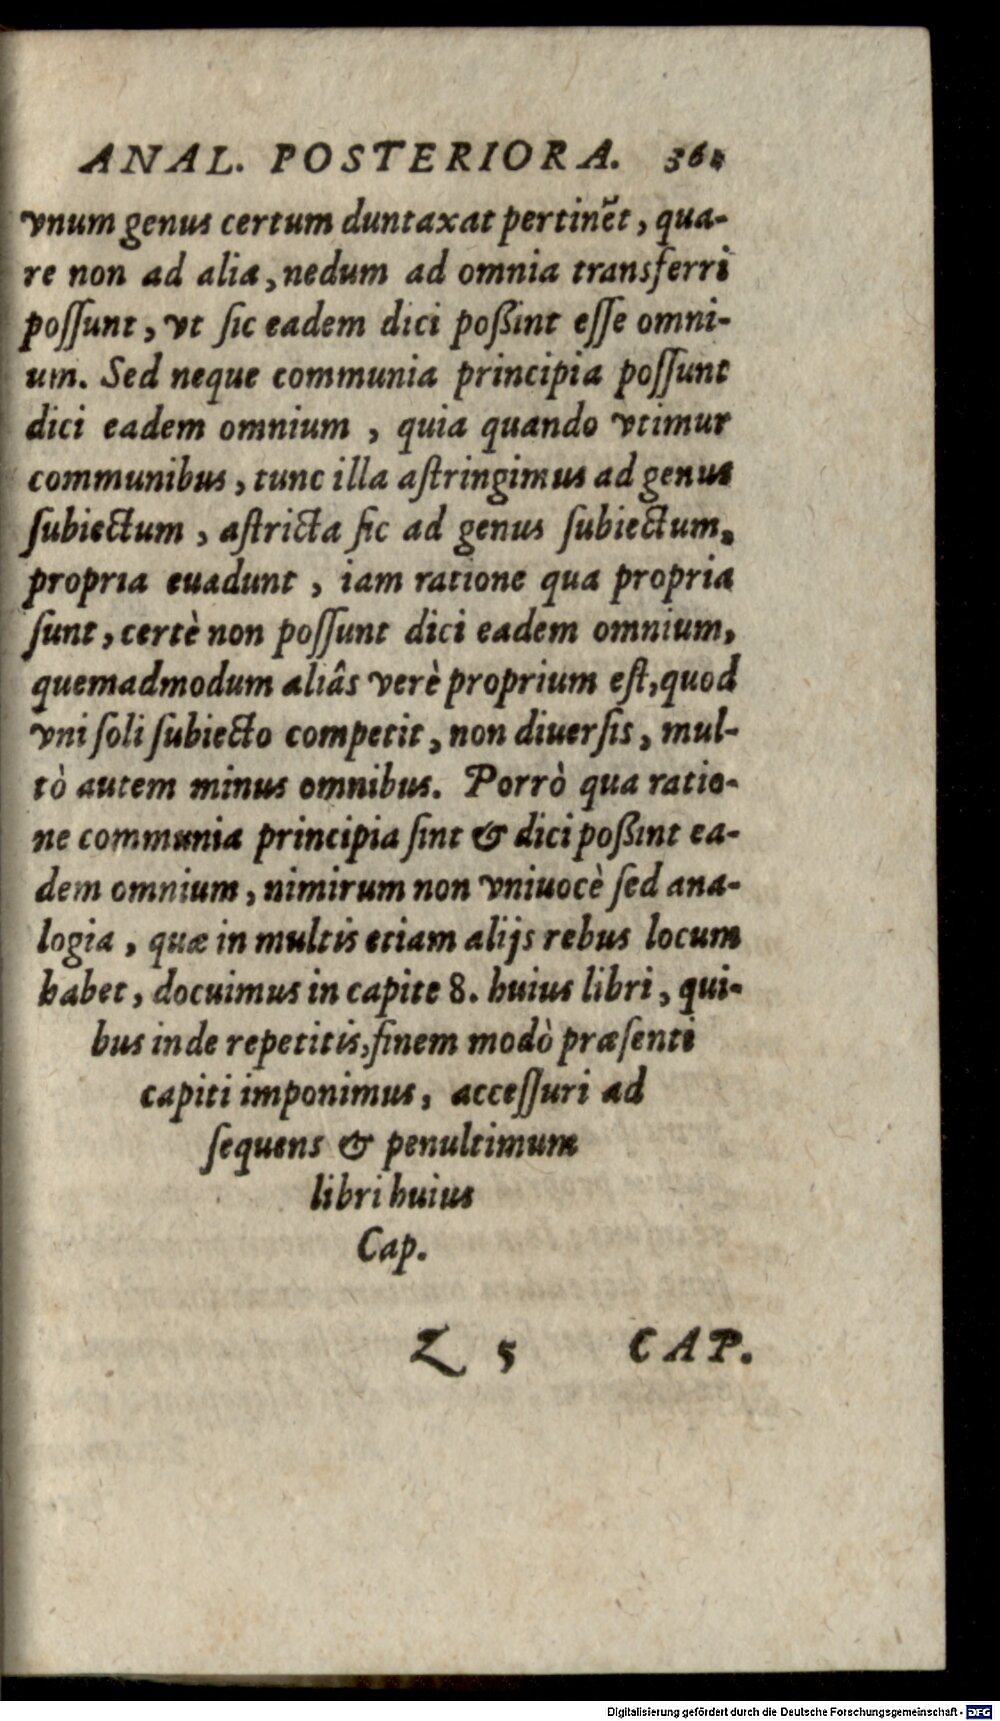 ANAL. POSTERIORA. 361
vnum genus certum duntaxat pertinẽt, qua-
re non ad alia, nedum ad omnia transferri
poſſunt, vt ſic eadem dici poßint eſſe omni-
um. Sed neque communia principia poſſunt
dici eadem omnium , quia quando vtimur
communibus, tunc illa aſtringimus ad genus
ſubiectum , aſtricta ſic ad genus ſubiectum,
propria euadunt , iam ratione qua propria
ſunt, certè non poſſunt dici eadem omnium,
quemadmodum aliâs verè proprium eſt, quod
vni ſoli ſubiecto competit, non diuerſis, mul-
tò autem minus omnibus. Porrò qua ratio-
ne communia principia ſint & dici poßint ea-
dem omnium, nimirum non vniuocè ſed ana-
logia , quæ in multis etiam alijs rebus locum
habet, docuimus in capite 8. huius libri, qui-
bus inde repetitis, finem modò præſenti
capiti imponimus, acceſſuri ad
ſequens & penultimum
libri huius
Cap.
Z 5 CAP.
Digitalisierung gefördert durch die Deutsche Forschungsgemeinschaft - DFG